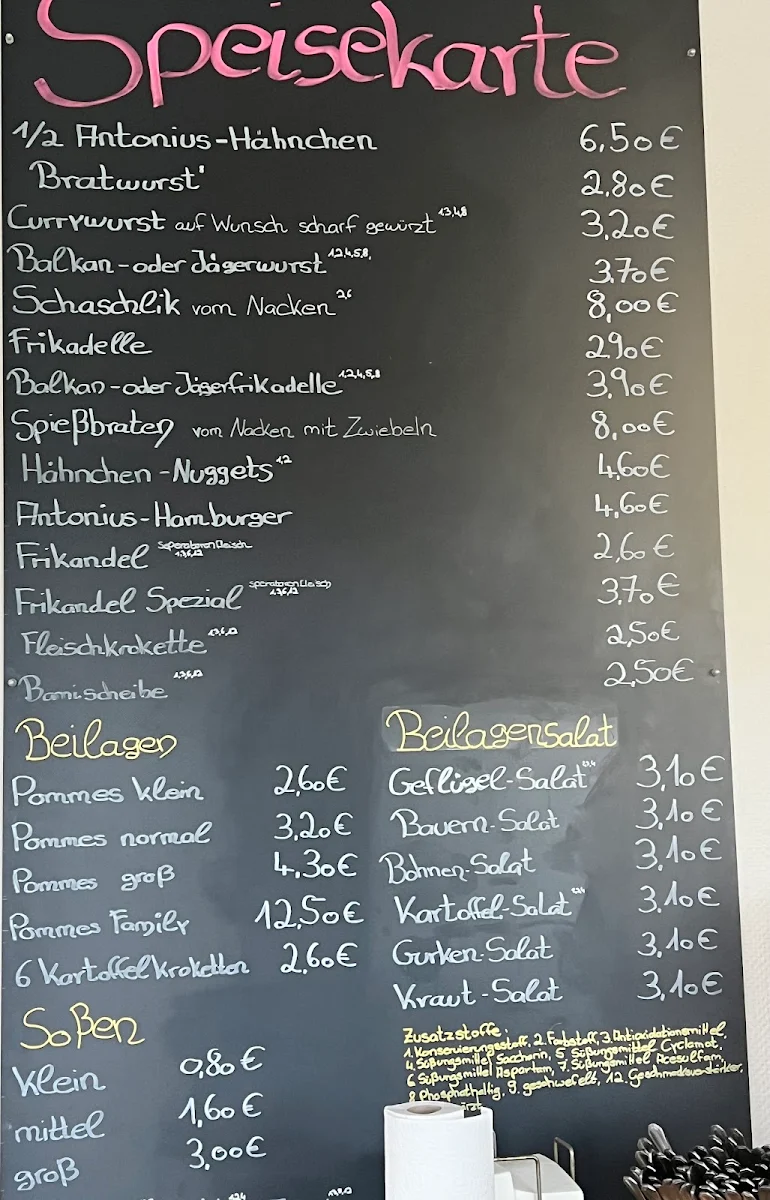 Speisekarte
1/2 Antonius-Hähnchen 6,50€
Bratwurst' 2,80€
Currywurst auf Wunsch scharf gewürzt 3,20€
Balkan-oder Jägerwurst 1,2,4,5,8, 3,70€
Schaschlik vom Nacken 2,6 8,00€
Frikadelle 2,90€
Balkan-oder Jägerfrikadelle 1,2,4,5,8 3,90€
Spießbraten vom Nacken mit Zwiebeln 8,00€
Hähnchen-Nuggets 1,2 4,60€
Antonius-Hamburger 4,60€
Frikandel 2,60€
Frikandel Spezial 3,70€
Fleischkrokette 2,50€
Bamischeibe 2,50€
Beilagen
Pommes klein 2,60€
Pommes normal 3,20€
Pommes groß 4,30€
Pommes Family 12,50€
6 Kartoffelkroketten 2,60€
Soßen
klein 0,80€
mittel 1,60€
groß 3,00€
Beilagensalat
Geflügel-Salat 3,10€
Bauern-Salat 3,10€
Bohnen-Salat 3,10€
Kartoffel-Salat 3,10€
Gurken-Salat 3,10€
Kraut-Salat 3,10€
Zusatzstoffe:
1. Konservierungsstoff, 2. Farbstoff, 3. Antioxidationsmittel,
4. Süßungsmittel Saccharin, 5. Süßungsmittel Cyclamat,
6 Süßungsmittel Aspartam, 7. Süßungsmittel Acesulfam,
8 Phosphathaltig, 9. geschwefelt, 12. Geschmacksverstärker,